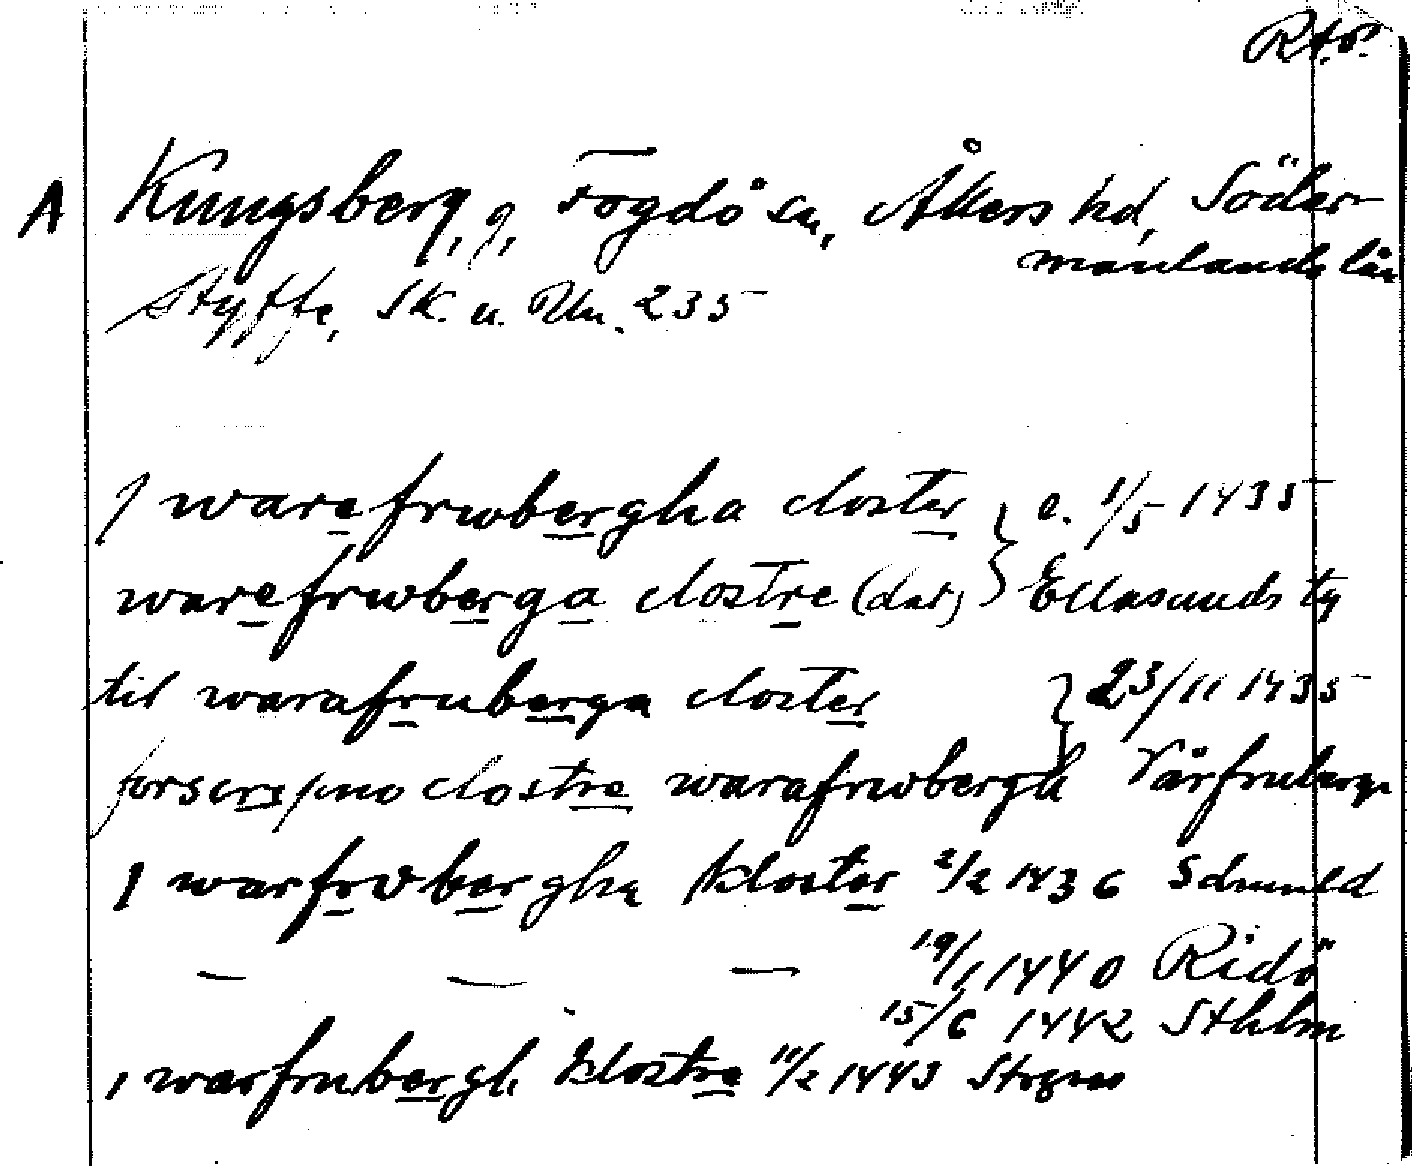 R+ö.
A Kungsberg, g, Fogdö sn, Åkers hd, Söder-
manlands län
Styffe, SK. u. Un. 235
J warefrwbergha closter } e. 1/5 1435
warefrwberga clostre (dat) Ellasunds ty
til warafruberga closter } 23/11 1435
forscrspno clostre warafrwbergh Vårfruberga
J warfrvbergha kloster 2/2 1436
— — — 19/1 1440 Ridö
15/6 1442 Sthlm
i warfrubergh klostre 11/2 1443 Strgnas